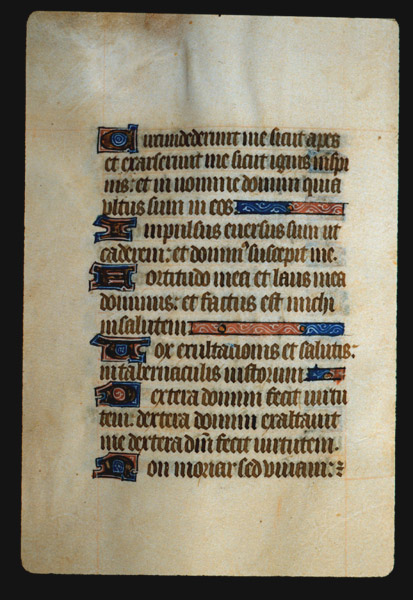 Circumdederunt me sicut apes
et exarserunt me sicut ignis in spi
nis: et in nomine domini quia
ultus sum in eos
Impulsus eversus sum ut
caderem: et domin' suscepit me.
Fortitudo mea et laus mea
dominus: et factus est michi
in salutem
Vox exultacionis et salutis:
in tabernaculis iustorum
Dextera domini fecit virtu
tem: dextera domini exaltavit
me dextera dñi fecit virtutem.
Non moriar sed vivam: